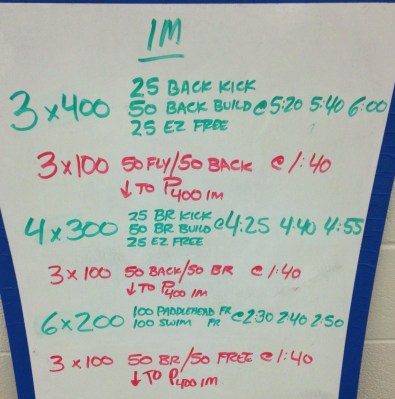 IM
25 BACK KICK
3x400 50 BACK BUILD @ 5:20 5:40 6:00
25 EZ FREE
3x100 50 FLY/50 BACK @ 1:40
↓ TO P400 IM
25 BR KICK
4x300 50 BR BUILD @ 4:25 4:40 4:55
25 EZ FREE
3x100 50 BACK/50 BR @ 1:40
↓ TO P400 IM
100 PADDLEHEAD FR
6x200 @ 2:30 2:40 2:50
100 SWIM FR
3x100 50 BR/50 FREE @ 1:40
↓ TO P400 IM